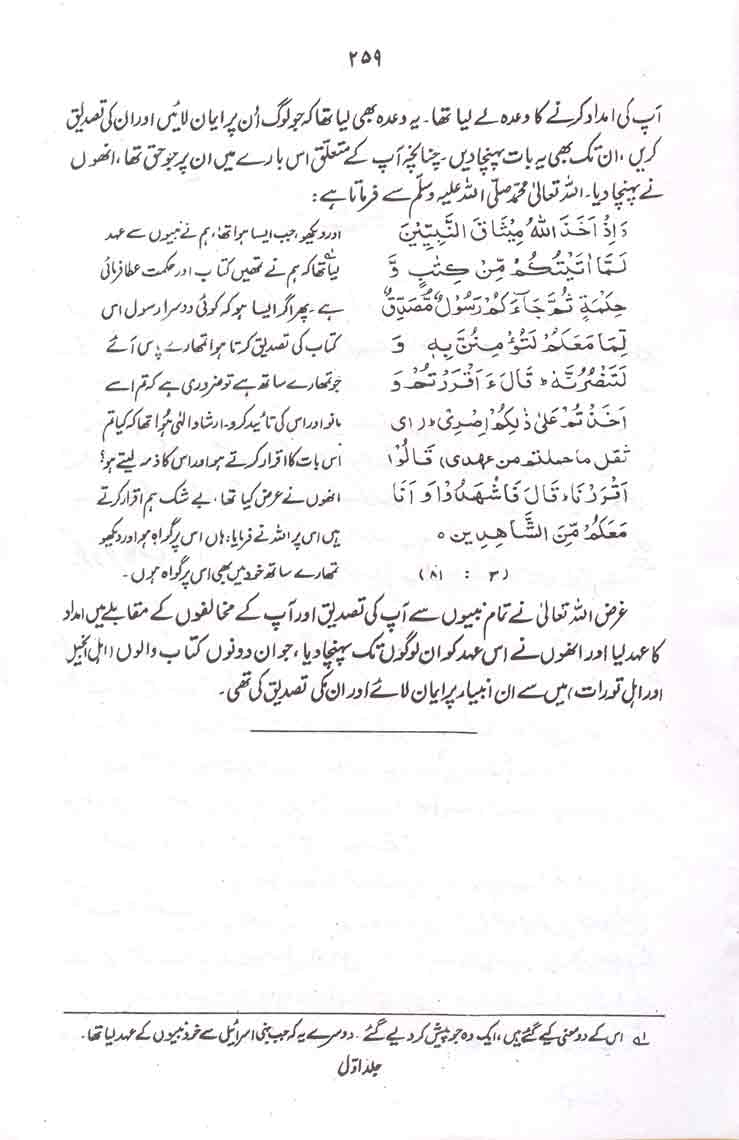 ۲۵۹
آپ کی امداد کرنے کا وعدہ لے لیا تھا۔ یہ وعدہ بھی لیا تھا کہ جو لوگ اُن پر ایمان لائیں اور ان کی تصدیق
کریں، ان تک بھی یہ بات پہنچا دیں۔ چنانچہ آپ کے متعلق اس بارے میں ان پر جو حق تھا، انھوں
نے پہنچا دیا۔ اللہ تعالیٰ محمد صلّی اللہ علیہ وسلّم سے فرماتا ہے:
وَاِذْ اَخَذَ اللّٰهُ مِيْثَاقَ النَّبِيّٖنَ
لَمَّا اٰتَيْتُكُمْ مِّنْ كِتٰبٍ وَّ
حِكْمَةٍ ثُمَّ جَآءَكُمْ رَسُوْلٌ مُّصَدِّقٌ
لِّمَا مَعَكُمْ لَتُؤْمِنُنَّ بِهٖ وَ
لَتَنْصُرُنَّهٗ ط قَالَ ءَاَقْرَرْتُمْ وَ
اَخَذْتُمْ عَلٰى ذٰلِكُمْ اِصْرِىْ ط (اى
ثقل ما حملتم من عهدى) قَالُوْا
اَقْرَرْنَا ط قَالَ فَاشْهَدُوْا وَ اَنَا
مَعَكُمْ مِّنَ الشَّاهِدِيْنَ ه
(۳ : ۸۱)
اور دیکھو، جب ایسا ہوا تھا، ہم نے نبیوں سے عہد
لیا لہ تھا کہ ہم نے تمھیں کتاب اور حکمت عطا فرمائی
ہے۔ پھر اگر ایسا ہو کہ کوئی دوسرا رسول اس
کتاب کی تصدیق کرتا ہوا تمھارے پاس آئے
جو تمھارے ساتھ ہے تو ضروری ہے کہ تم اسے
مانو اور اس کی تائید کرو۔ ارشاد الٰہی ہُوا تھا کہ کیا تم
اس بات کا اقرار کرتے ہو اور اس کا ذمہ لیتے ہو؟
انھوں نے عرض کیا تھا، بے شک ہم اقرار کرتے
ہیں اس پر اللہ نے فرمایا: ہاں اس پر گواہ رہو اور دیکھو
تمھارے ساتھ خود میں بھی اس پر گواہ ہوں۔
غرض اللہ تعالیٰ نے تمام نبیوں سے آپ کی تصدیق اور آپ کے مخالفوں کے مقابلے میں امداد
کا عہد لیا اور انھوں نے اس عہد کو ان لوگوں تک پہنچا دیا، جو ان دونوں کتاب والوں (اہل انجیل
اور اہل تورات) میں سے ان انبیاء پر ایمان لائے اور ان کی تصدیق کی تھی۔
لہ اس کے دو معنی کیے گئے ہیں، ایک وہ جو پیش کر دیے گئے۔ دوسرے یہ کہ جب بنی اسرائیل سے خود نبیوں کے عہد لیا تھا۔
جلد اوّل